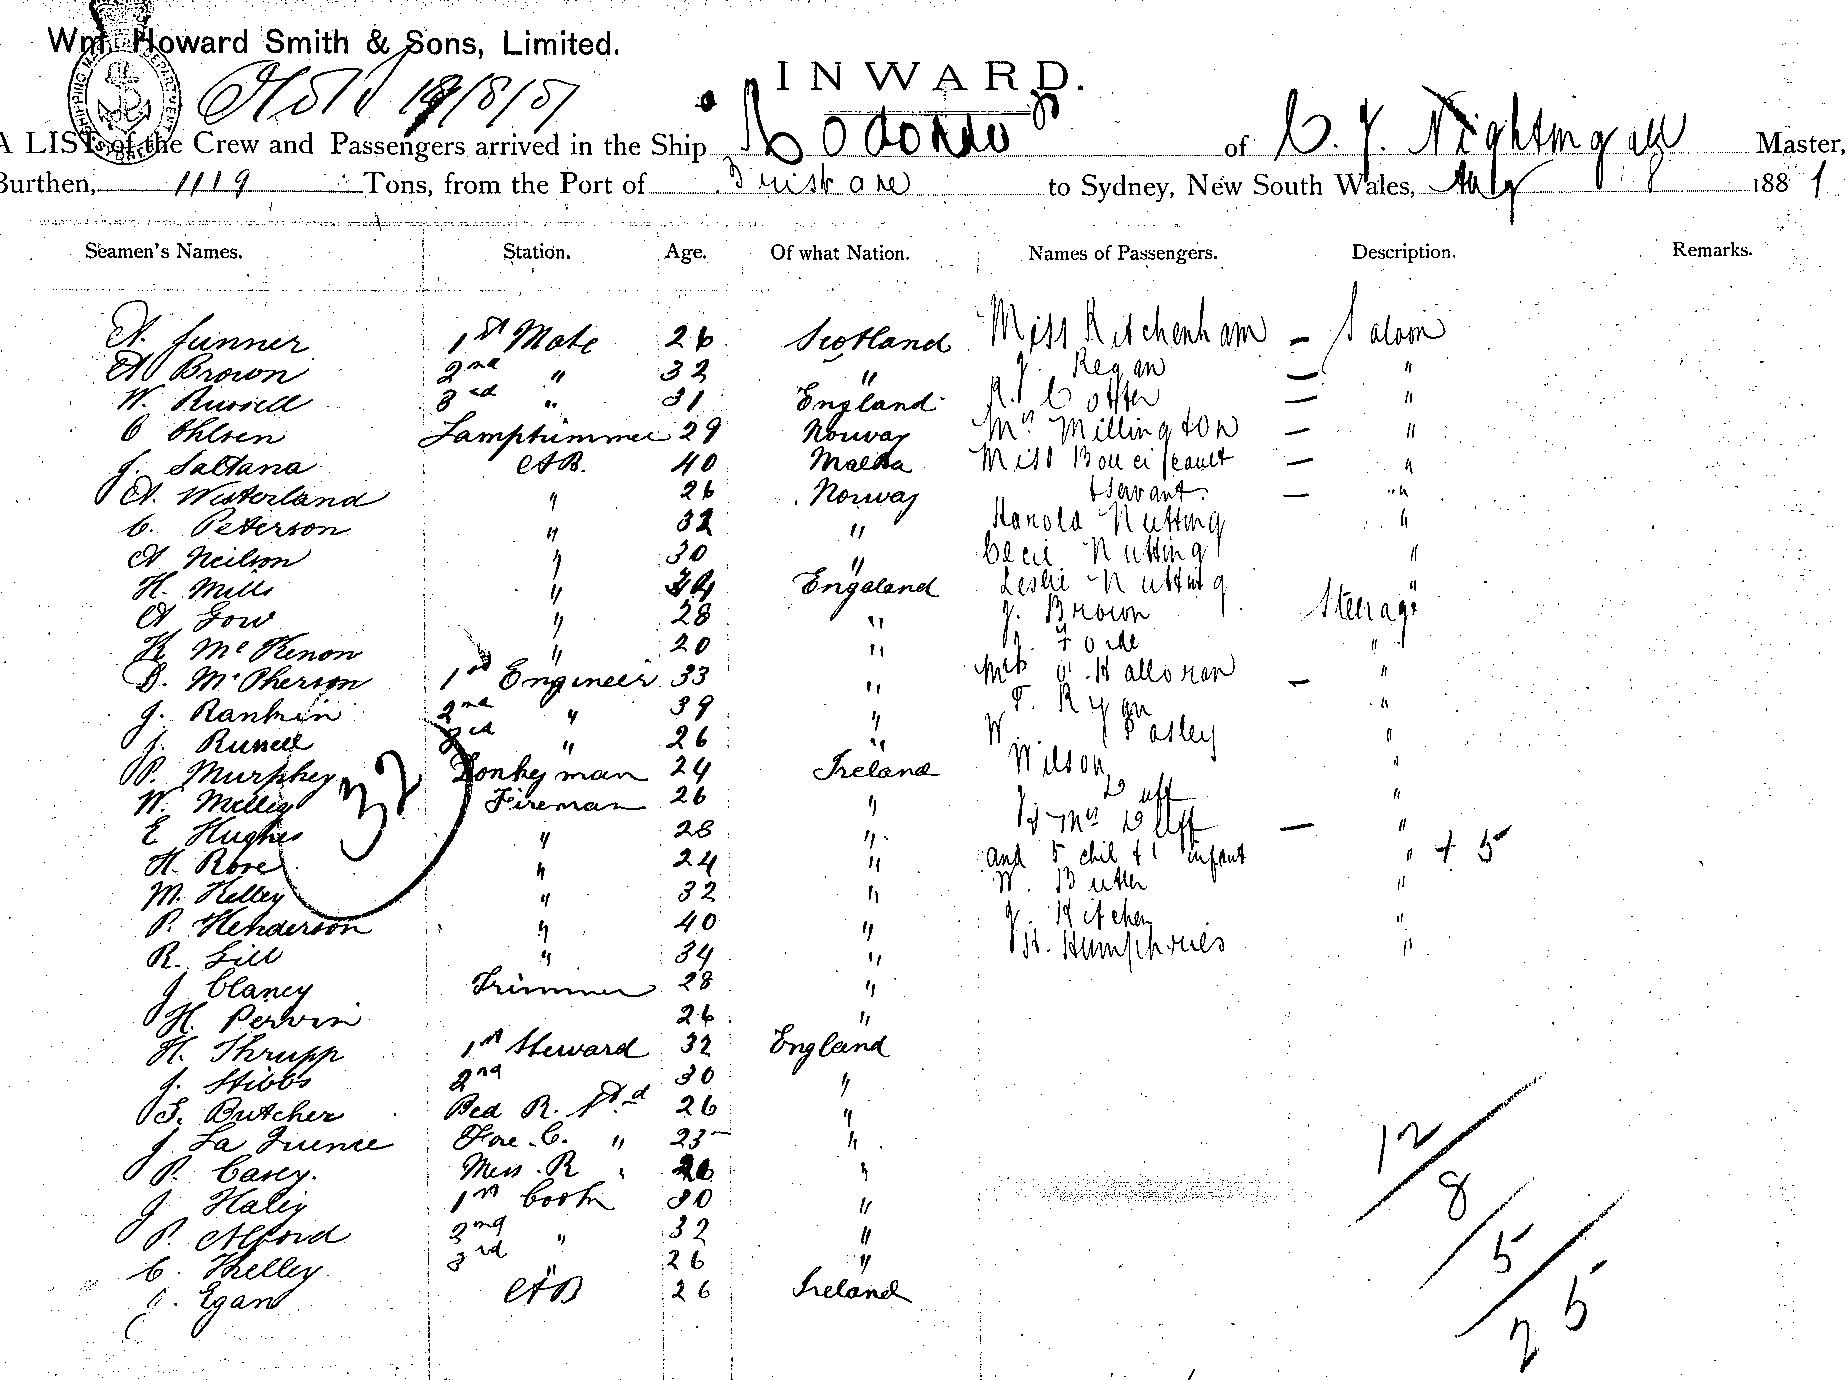 Wm. Howard Smith & Sons, Limited.
INWARD.
A LIST of the Crew and Passengers arrived in the Ship Rodondo of C. J. Nightingall Master,
Burthen, 1119 Tons, from the Port of Brisbane to Sydney, New South Wales, July 188 1
Seamen's Names. Station. Age. Of what Nation. Names of Passengers. Description. Remarks.
A. Gunner 1st Mate 26 Scotland Miss Kitchenham — Saloon
A Brown 2nd " 32 " J. Regan — "
W. Russell 3rd " 31 England R. Cotter — "
C Ohlsen Lamptrimmer 29 Norway Mrs Millington — "
J. Saltana AB. 40 Malta Miss — "
A. Westerland " 26 Norway & Servant. — "
C. Peterson " 32 " Harold Nutting "
A Neilson " 30 " Cecil Nutting "
H. Mills " England Leslie Nutting "
A Gow " 28 " J. Brown Steerage
K McKenon " 20 " J. Forde "
D. McPherson 1st Engineer 33 " Mrs O'Halloran — "
J. Rankin 2nd " 39 " T. Ryan "
J. Russell 3rd " 26 " W Pasley "
P. Murphey Donkeyman 24 Ireland Wilson "
W. Milley Fireman 26 " Duff "
E Hughes " 28 " & Mrs Duff — "
H. Rore " 24 " and 5 chil & 1 infant " + 5
M. Kelley " 32 " W. Butter "
P. Henderson " 40 " J. Kitchen "
R. Gill " 34 " H. Humphries "
J Clancy Trimmer 28 "
H. Pervin 26 "
H. Thrupp 1st Steward 32 England
J. Stibbs 2nd 30 "
G. Butcher Bed R. Std 26 "
J. La Fore. C. " 23 "
P. Casey. Mess. R " 26 "
J Haley 1st Cook 30 "
P. Alford 2nd " 32 "
C. Kelley 3rd " 26 "
Egan AB 26 Ireland
32
12/8/5/25